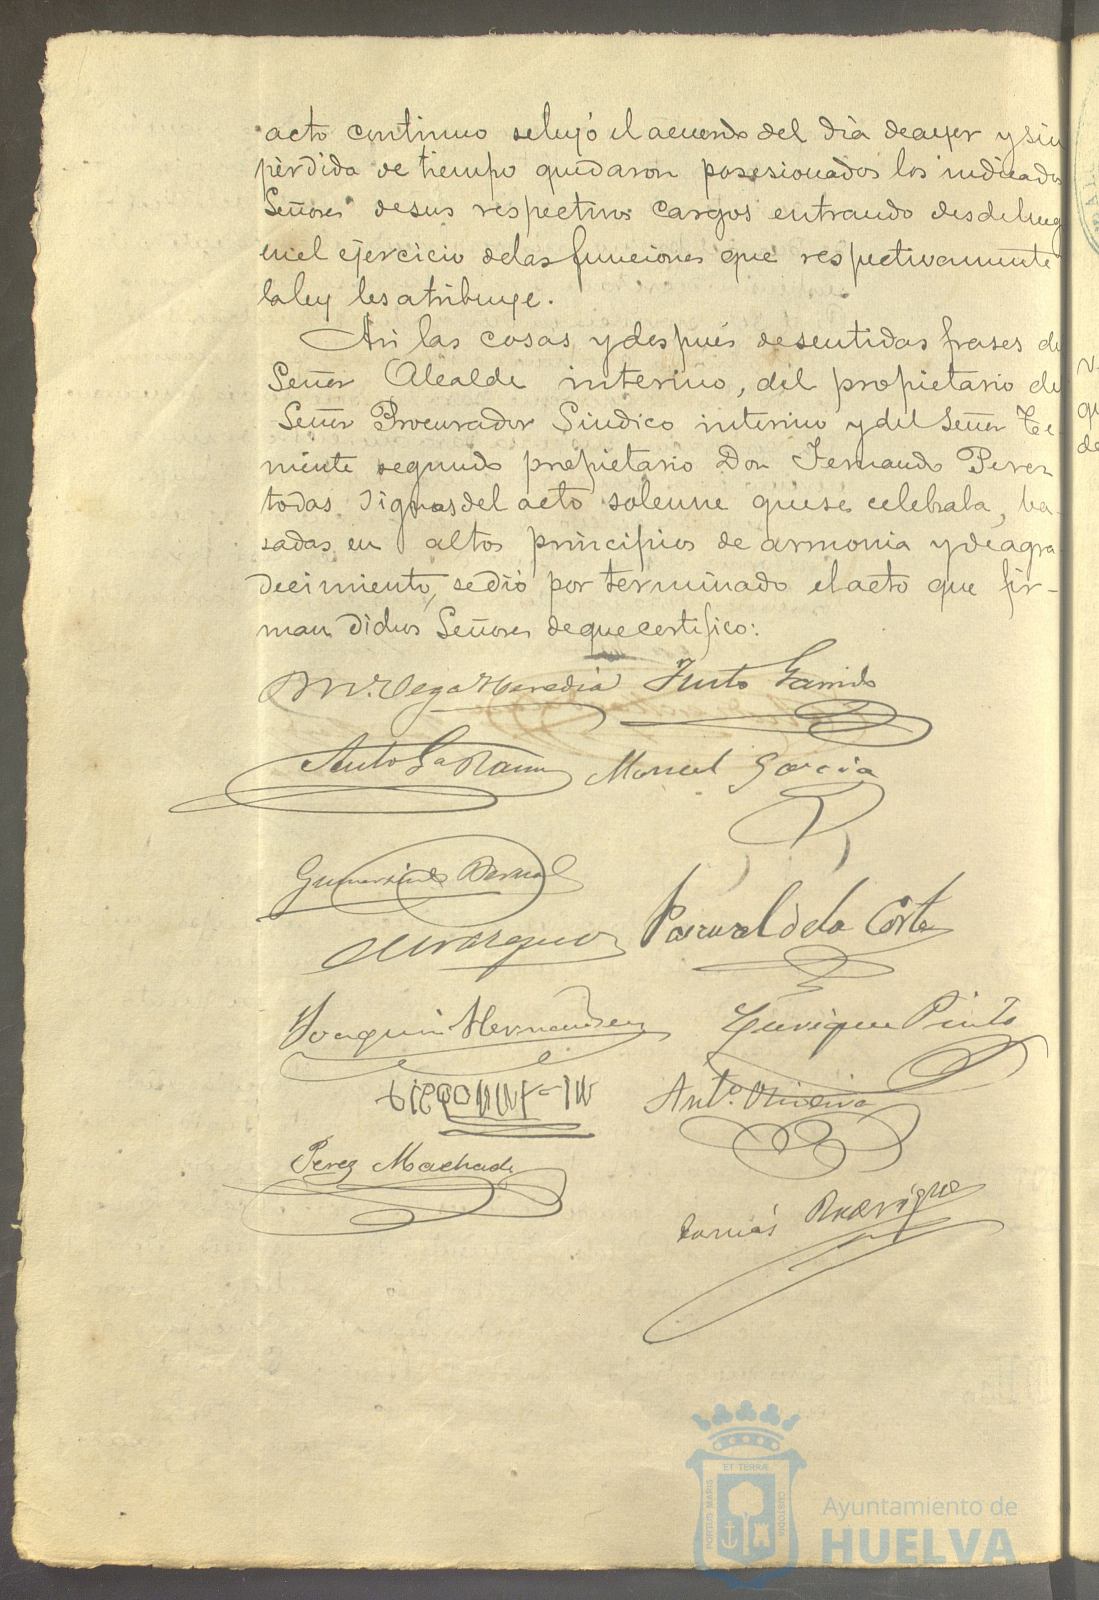 acto continuo se leyó el acuerdo del día de ayer y sin
pérdida de tiempo quedaron posesionados los indicados
Señores de sus respectivos cargos entrando desde luego
en el ejercicio de las funciones que respectivamente
la ley les atribuye.
Así las cosas y después de sentidas frases del
Señor Alcalde interino, del propietario del
Señor Procurador Sindico interino y del Señor Te
niente segundo propietario Don Fernando Perez
todas dignas del acto solemne que se celebraba, ba-
sadas en altos principios de armonia y de agra
decimiento, se dió por terminado el acto que fir-
man dichos Señores de que certifico:
M. Vega Heredia Justo Garrido
Anto Ga Ramos Manuel Garcia
Gumersindo Bernal
Vazquez Pascual de la Corte
Joaquin Hernandez Enrique Pinto
Anto. Oliveira
Perez Machado
Tomás Rodríguez
PORTUS MARIS ET TERRÆ CUSTODIA
Ayuntamiento de
HUELVA